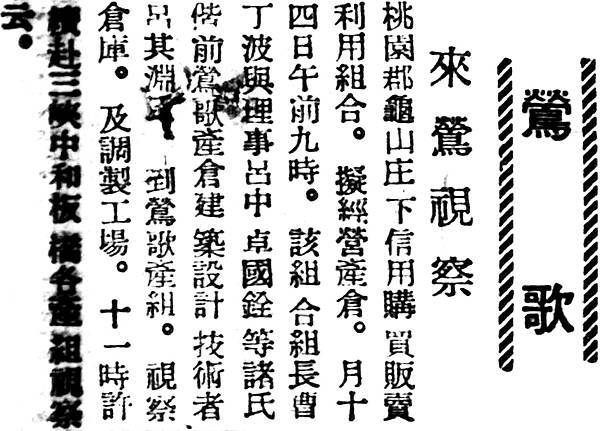 鶯歌
來鶯視察
桃園郡龜山庄下信用購買販賣
利用組合。擬經營產倉。月十
四日午前九時。該組合組長曹
丁波與理事呂中卓國銓等諸氏
偕前鶯歌產倉建築設計技術者
呂其淵 到鶯歌產組。視察
倉庫。及調製工場。十一時許
續赴三峽中和板橋各產組視察
云。